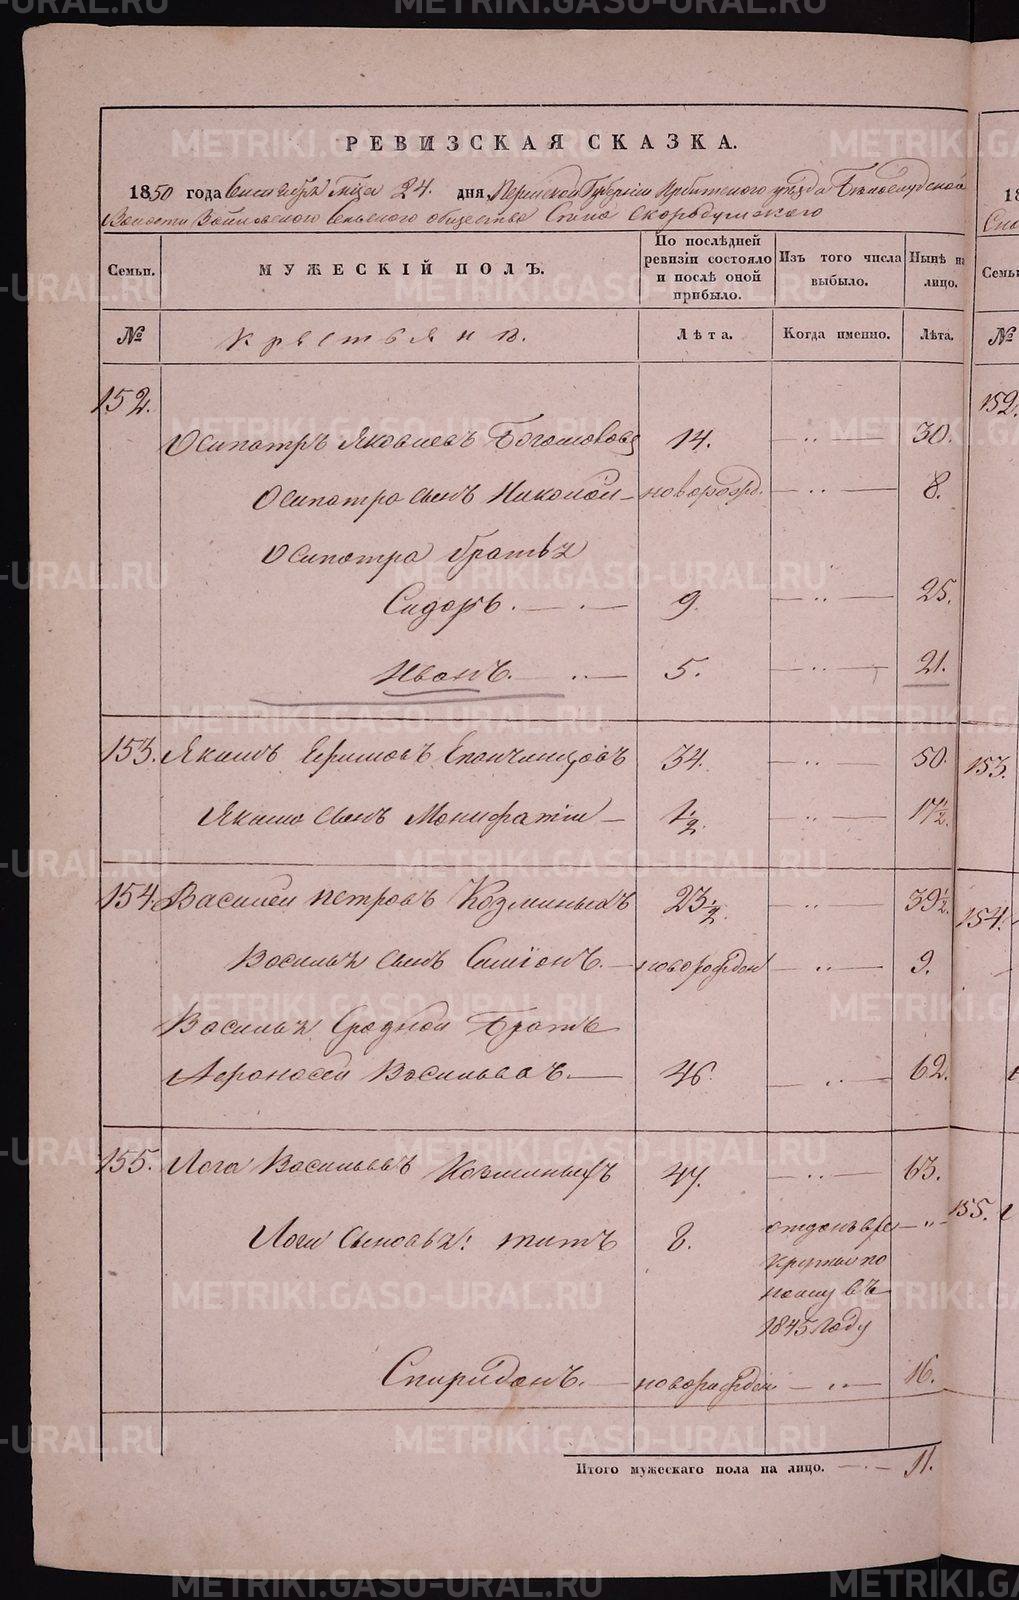 РЕВИЗСКАЯ СКАЗКА.
1850 года Сентября м҃ца 24. дня, Пермской Губернии Ирбитского уезда Белослудской
Волости Зайковского Сельского общества Села Скородумского
Семьи. МУЖЕСКІЙ ПОЛЪ. По послѣдней ревизіи состояло и послѣ оной прибыло. Изъ того числа выбыло. Нынѣ на лицо.
№ Крестьянъ. Лѣта. Когда именно. Лѣта.
152.
Осипатръ Яковлевъ 14. — „ — 30.
Осипатра сынъ Николай — новорозд. — „ — 8.
Осипатра братья
Сидоръ. — 9. — „ — 25.
Иванъ. — 5. — „ — 21.
153. Якимъ Ефимовъ Епанчинцовъ 34. — „ — 50.
Якима сынъ Монифатіи — 1½. — „ — 17½.
154. Василей Петровъ Козминыхъ 23½. — „ — 39½.
Василья сынъ Симіонъ. — новорожден — „ — 9.
Василья Сродной Братъ
Афонасей Васильевъ. — 46. — „ — 62.
155. Лога Васильевъ Козминыхъ 47. — „ — 63.
Логи сыновья: Титъ 8. отданъ в ре — „ —
круты по
полицу въ
1845 году
Спиридонъ. — новорожден — „ — 16.
Итого мужескаго пола на лицо. — 11.
18
Семьи
№
152.
153.
154.
155.
METRIKI.GASO-URAL.RU